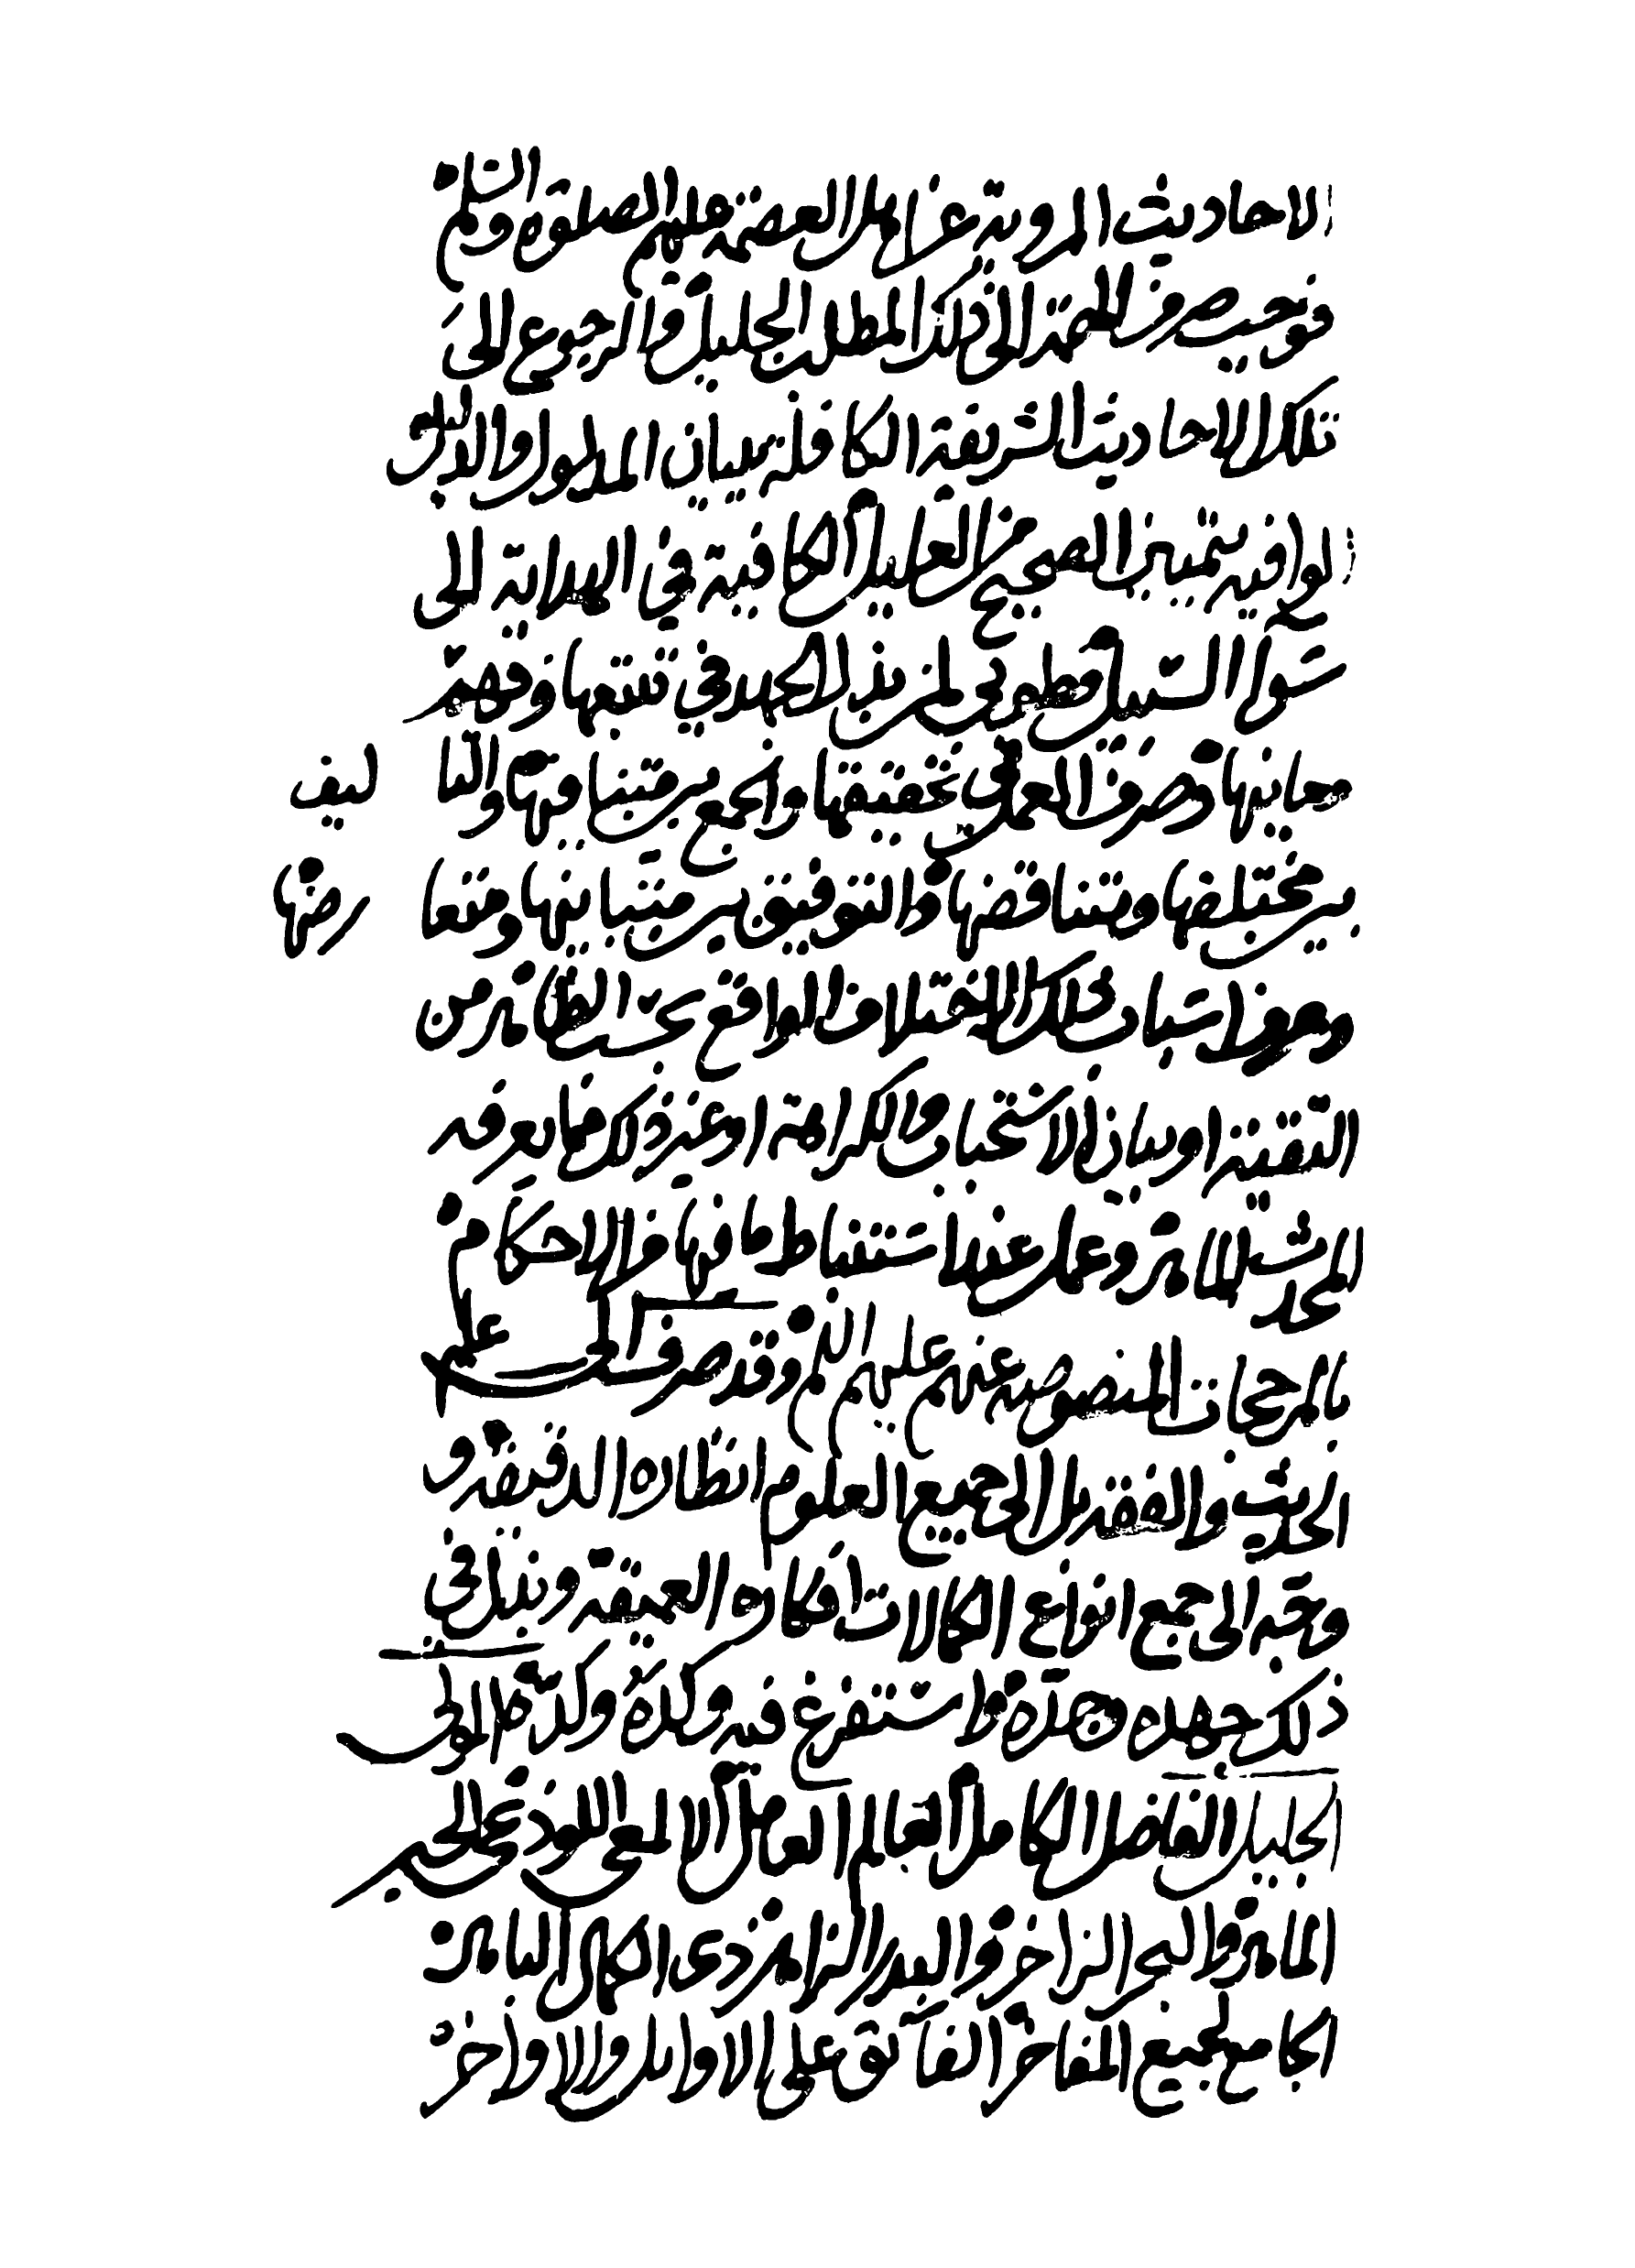 الاحاديث المروية عن اهل العصمة عليهم الصلوة والسلم
فوجب صرف الهمة الى ذلك المطلب الجليل والرجوع الى
تلك الاحاديث الشريفة الكافلة ببيان المدلول والدليل
الوافيه بتمييز الصحيح من العليل الكافية في الهداية الى
سواء السبيل فطوبى لمن بذل الجهد في تتبعها وفهم
معانيها وصرف العمر في تحقيقها والجمع بين متنافيها والتا ليف
بين مختلفها ومتناقضها والتوفيق بين متباينها ومتعا رضها
ومعرفة اسباب ذلك الاختلاف الواقع بحسب الظاهر من
التقية او بيان الاستحباب والكراهة او غير ذلك مما يعرفه
المحدث الماهر وعمل عند استنباط ما فيها من الاحكام
بالمرجحات المنصوصه عنهم عليهم السلم وقد صرف الى علم
الحديث والفقه بل الى جميع العلوم انظاره الدقيقه و
وجه الى جمع انواع الكمالات افكاره العميقة وبذل في
ذلك جهده وجده واستفرغ فيه وكده وكده المولى
الجليل الفاضل الكامل العالم العامل الالمعي اللوذعي الحبر
الماهر والبحر الزاخر والبدر الزاهر ذى الكمال الباهر
الجامع لجميع المفاخر الفائق على الاوايل والاواخر